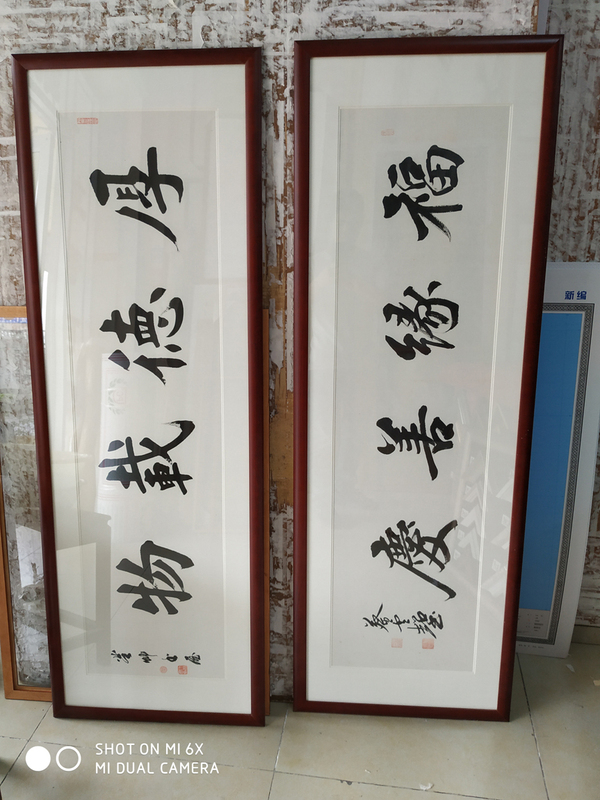 厚德載物
福缘善慶
新编
SHOT ON MI 6X
MI DUAL CAMERA